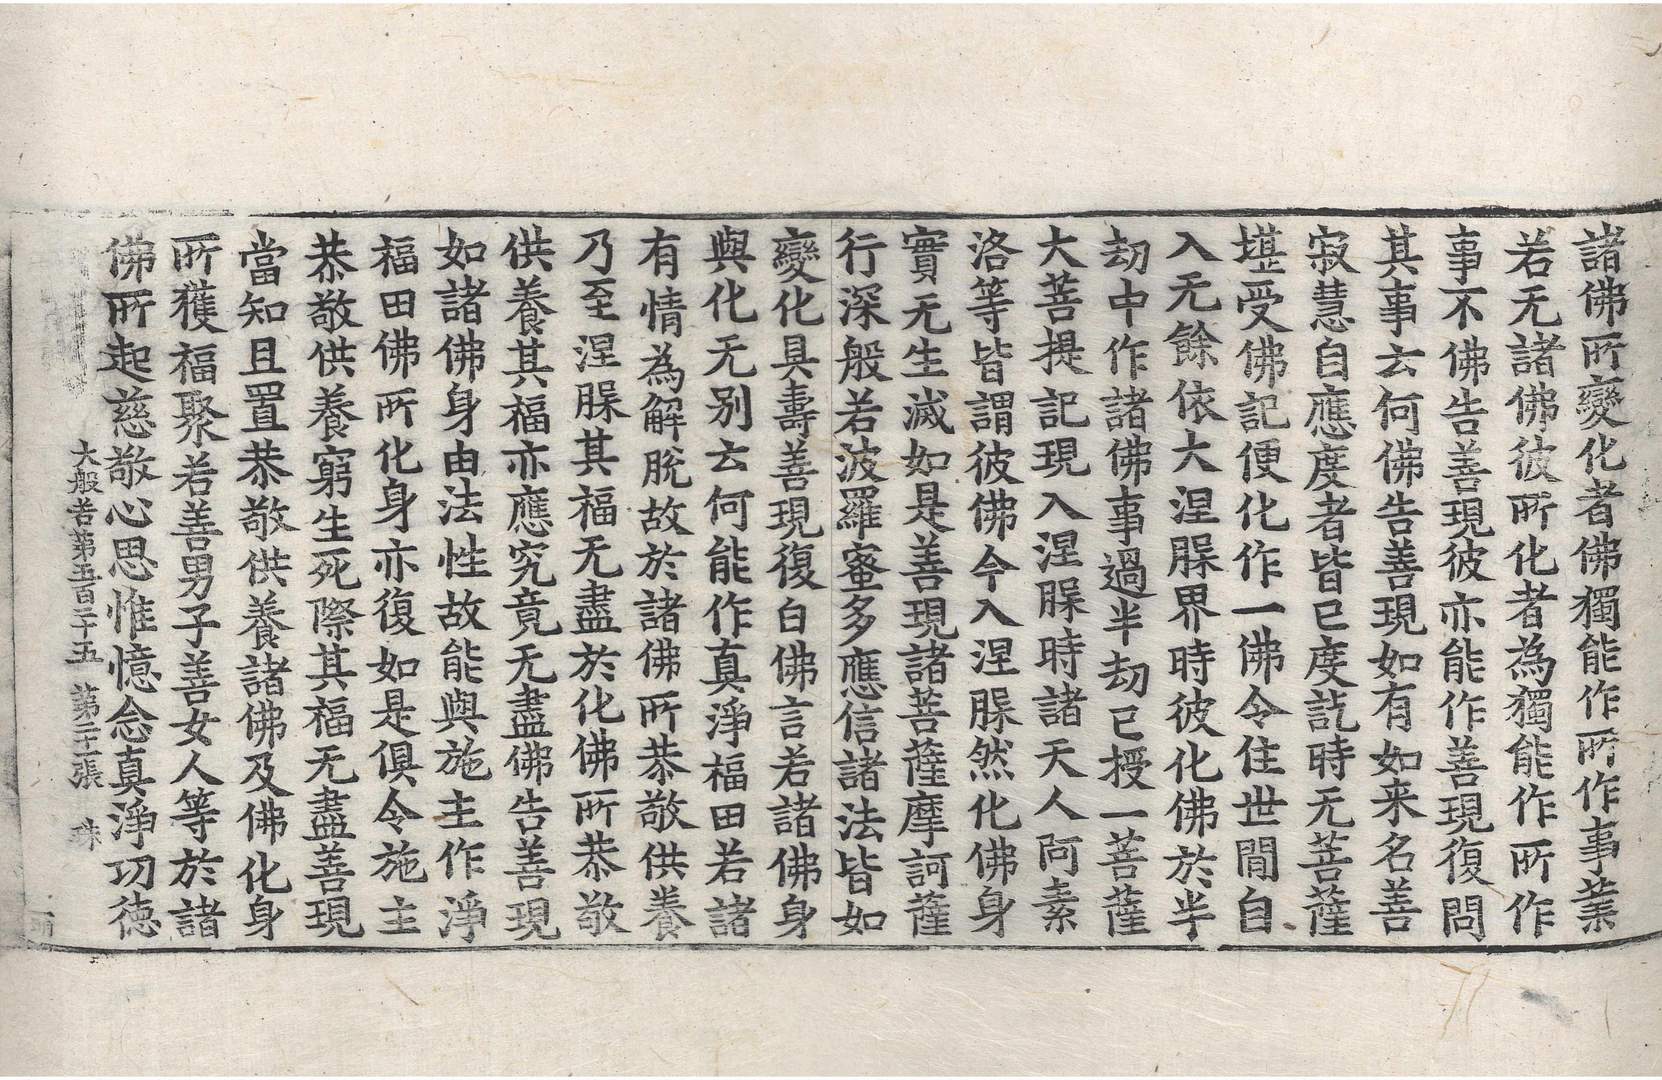 諸佛所變化者佛獨能作所作事業
若无諸佛彼所化者為獨能作所作
事不佛告善現彼亦能作善現復問
其事云何佛告善現如有如来名善
寂慧自應度者皆已度訖時无菩薩
堪受佛記便化作一佛令住世間自
入无餘依大涅槃界時彼化佛於半
劫中作諸佛事過半劫已授一菩薩
大菩提記現入涅槃時諸天人阿素
洛等皆謂彼佛今入涅槃然化佛身
實无生滅如是善現諸菩薩摩訶薩
行深般若波羅蜜多應信諸法皆如
變化具壽善現復白佛言若諸佛身
與化无別云何能作真淨福田若諸
有情為解脫故於諸佛所恭敬供養
乃至涅槃其福无盡於化佛所恭敬
供養其福亦應究竟无盡佛告善現
如諸佛身由法性故能與施主作淨
福田佛所化身亦復如是俱令施主
恭敬供養窮生死際其福无盡善現
當知且置恭敬供養諸佛及佛化身
所獲福聚若善男子善女人等於諸
佛所起慈敬心思惟憶念真淨功德
大般若第五百二十五 第二十一張 珠